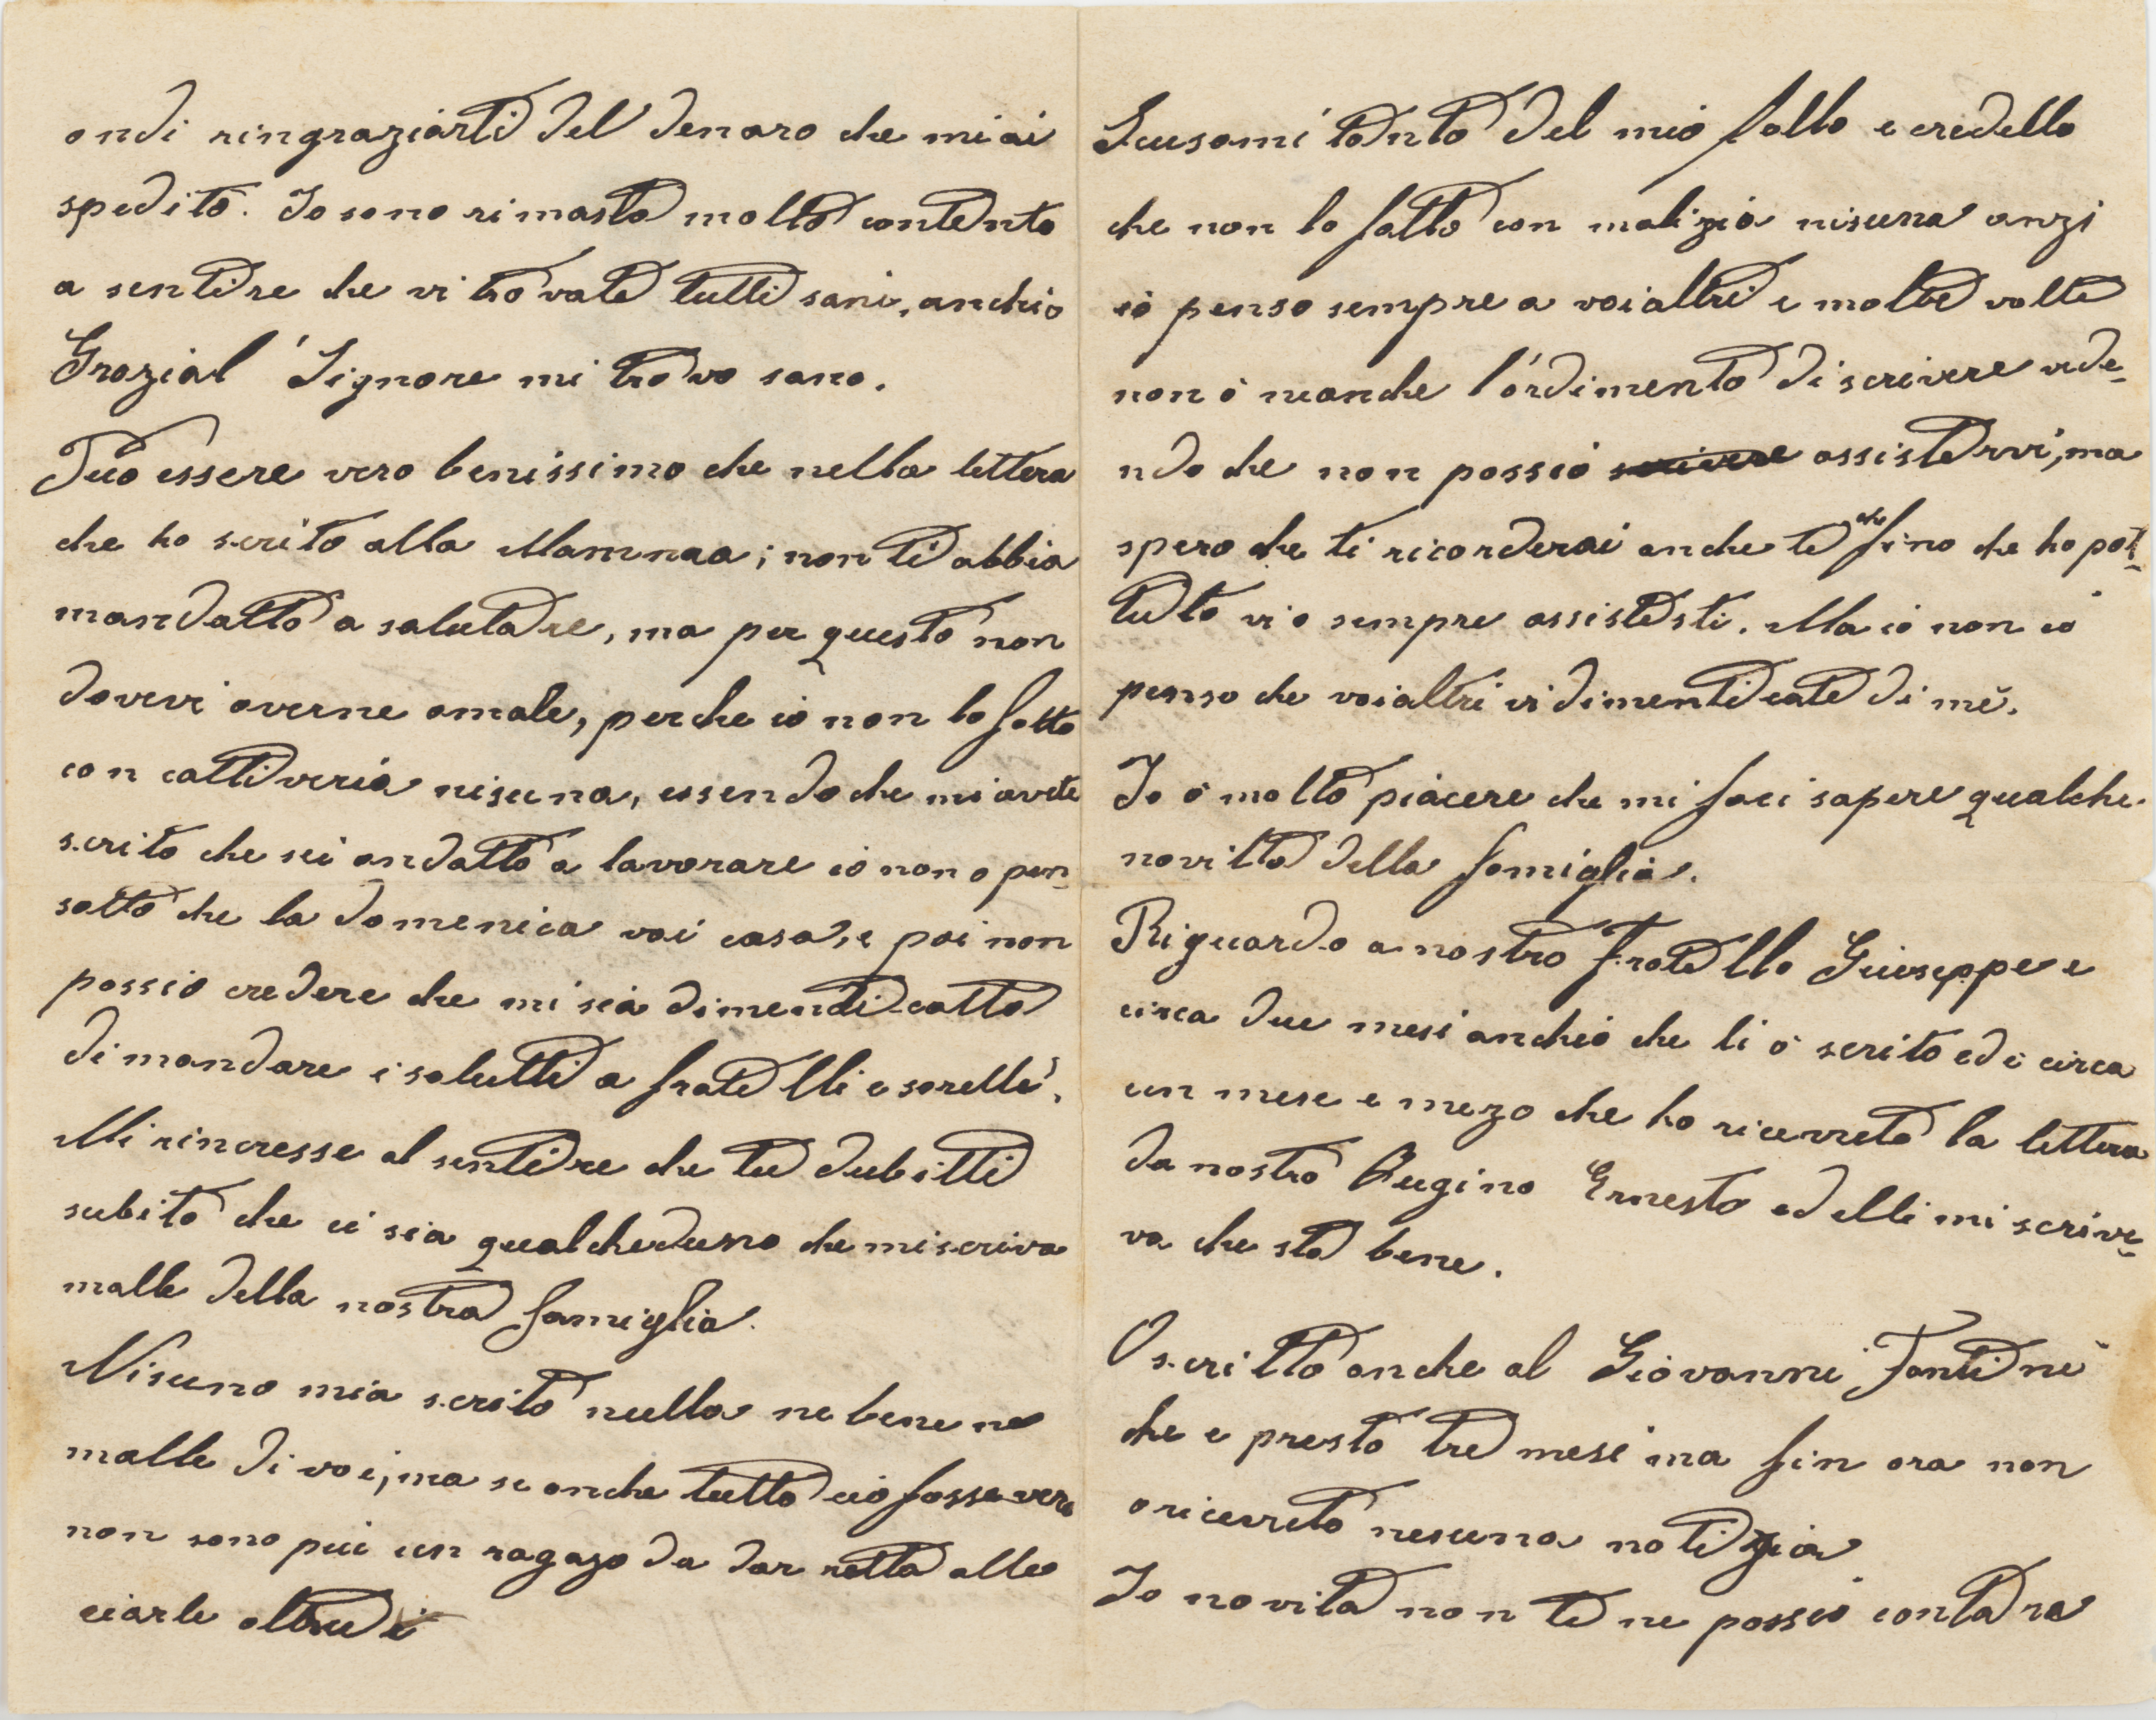 ondi ringraziarti del denaro che mi ai
spedito. Io sono rimasto molto contento
a sentire che vi trovate tutti sani, anchio
Grazial Signore mi trovo sano.
Può essere vero benissimo che nella lettera
che ho scrito alla Mammaa; non ti abbia
mandatto a salutare, ma per questo non
dovevi averne amale, perche io non lo fatto
con cattiveria nisuna, essendo che mi avete
scrito che sei andatto a lavorare io non o pen-
satto che la domenica vai casa, e poi non
possio credere che mi sia dimenticatto
di mandare i salutti a fratelli e sorelle.
Mi rincresse al sentire che tu dubitti
subito che ci sia qualcheduno che mi scriva
malle della nostra famiglia.
Nisuno mia scrito nulla ne bene ne
malle di voi, ma se anche tutto cio fosse vero
non sono piu un ragazo da dar retta alle
ciarle altrui
Scusami tanto del mio fallo e credello
che non lo fatto con malizia nisuna anzi
io penso sempre a voialtri e molte volte
non ò neanche l'ordimento di scrivere vede-
ndo che non possio scrivere assistervi, ma
spero che ti ricorderai anche te che fino che ho pot-
tuto vi o sempre assistesti. Ma io non ci
penso che voialtri vi dimenticate di me.
Io ò molto piacere che mi faci sapere qualche
novitta della famiglia.
Riguardo a nostro Fratello Giuseppe e
circa due mesi anchio che li ò scrito ed è circa
un mese e mezo che ho ricevuto la lettera
da nostro Cugino Ernesto ed elli mi scrive-
va che sta bene.
O scritto anche al Giovanni Fantini
che e presto tre mesi ma fin ora non
o ricevuto nesuna notizia
Io novita non te ne possio contare